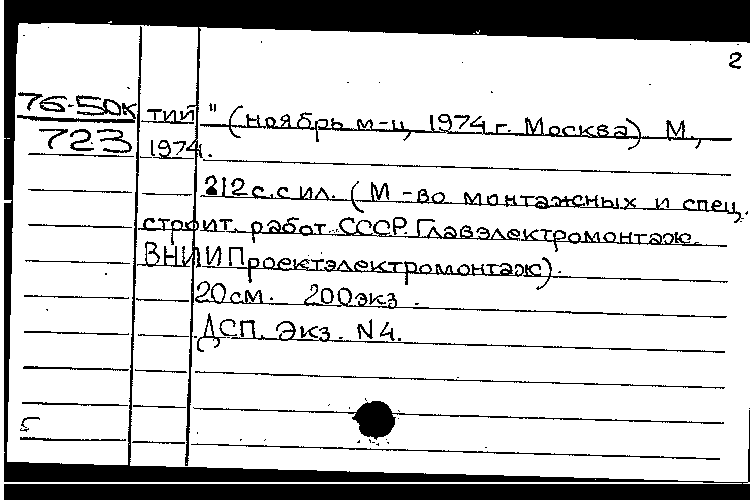 2
76-50к тий" (ноябрь м-ц, 1974 г. Москва). М.,
723 1974.
212 с. с ил. (М-во монтажных и спец.
строит. работ СССР. Главэлектромонтаж.
ВНИИПроектэлектромонтаж).
20 см. 200 экз.
ДСП. Экз. N4.
5